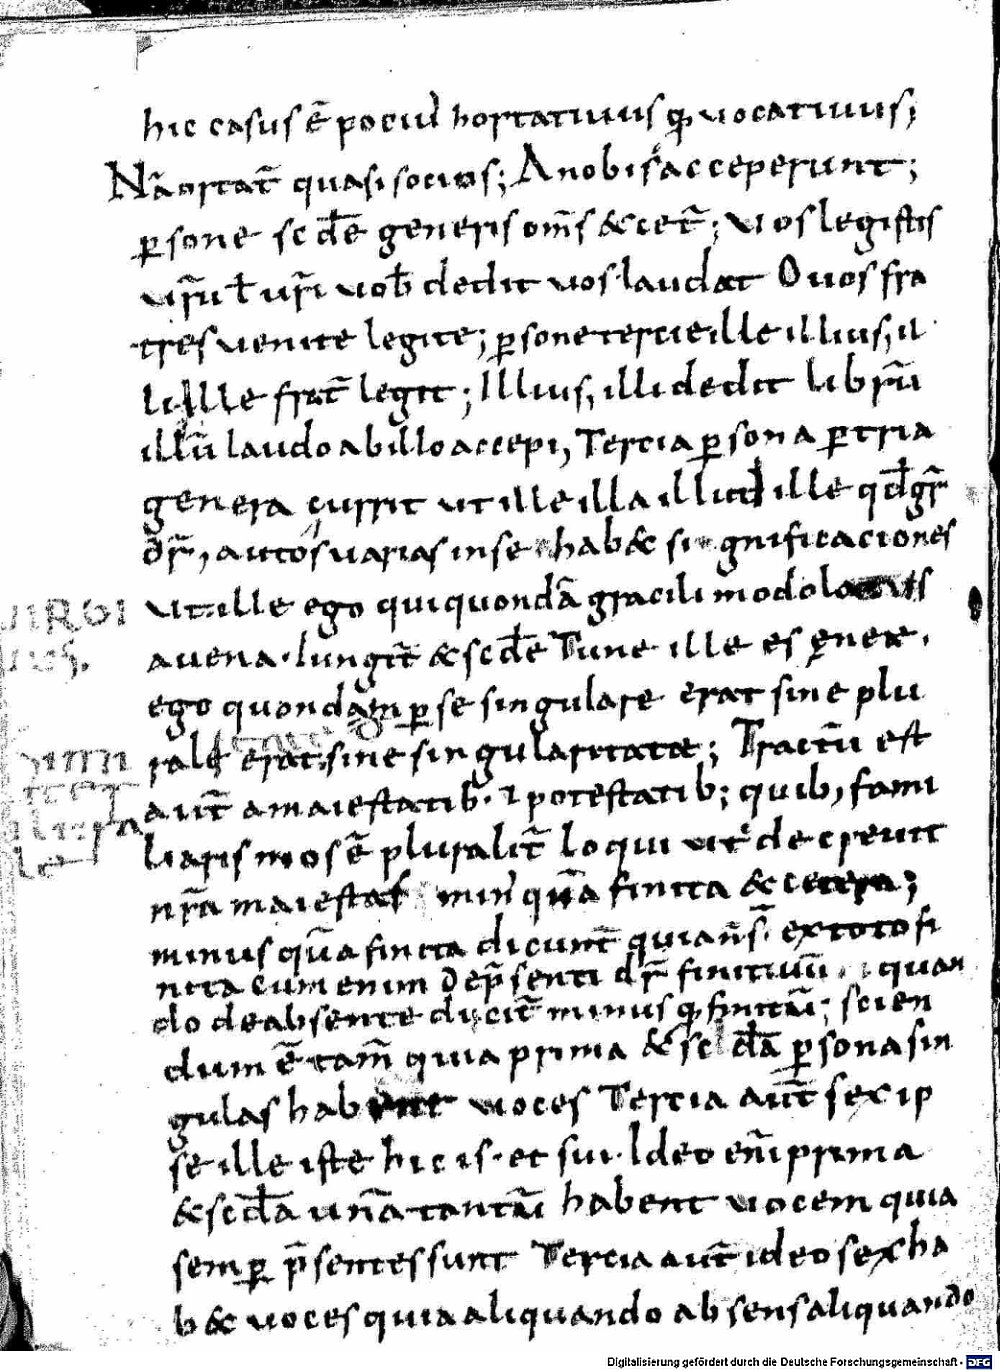 hic casus ē pociuſ hortatiuus quā uocatiuus;
Nā ortat̄ quasi socios; A nobis acceperunt;
ꝑsone scđe generis om̄s & cet̄; Vos legistis
ur̄m ł ur̄i uob̄ dedit uos laudat O uos fra
tres uenite legite; ꝑsone tercie ille illius, il
li Ille frat̄ legit; Illius, illi dedit librū
illū laudo ab illo accepi, Tercia ꝑsona ꝑ tria
genera currit ut ille illa illud ille qđ gr̄
dr̄, autos uarias in se hab& significaciones
ut ille ego qui quondā gracili modolatus
VIRGI
auena. Iungit̄ & scđe Tune ille es ꝑ nex.
ego quondam ꝑ se singulare erat sine plu
rale erat sine singularitatæ; Tractū est
aut̄ a maiestatib. ⁊ potestatib; quib, fami
liaris mos ē pluralit̄ loqui ut de creuit
nr̄a maiestas min' quā finita & cetera;
minus quā finita dicunt̄ quia n̄ s̄ ex toto fi
nita cum enim de p̄senti dr̄ finitiuū quan
do de absente dicit̄ minus quā finitū; scien
dum ē tam̄ quia prima & scđa ꝑsona sin
gulas habent uoces Tercia aut̄ sex ip
se ille iste hic is. et sui. Ideo eni prima
& scđa unā tantū habent uocem quia
semꝑ p̄sentes sunt Tercia aut̄ ideo sex ha
b& uoces quia aliquando absens aliquando
Digitalisierung gefördert durch die Deutsche Forschungsgemeinschaft - DFG